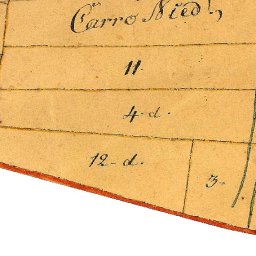 Carro Nied
11.
4-d.
12-d.
3-